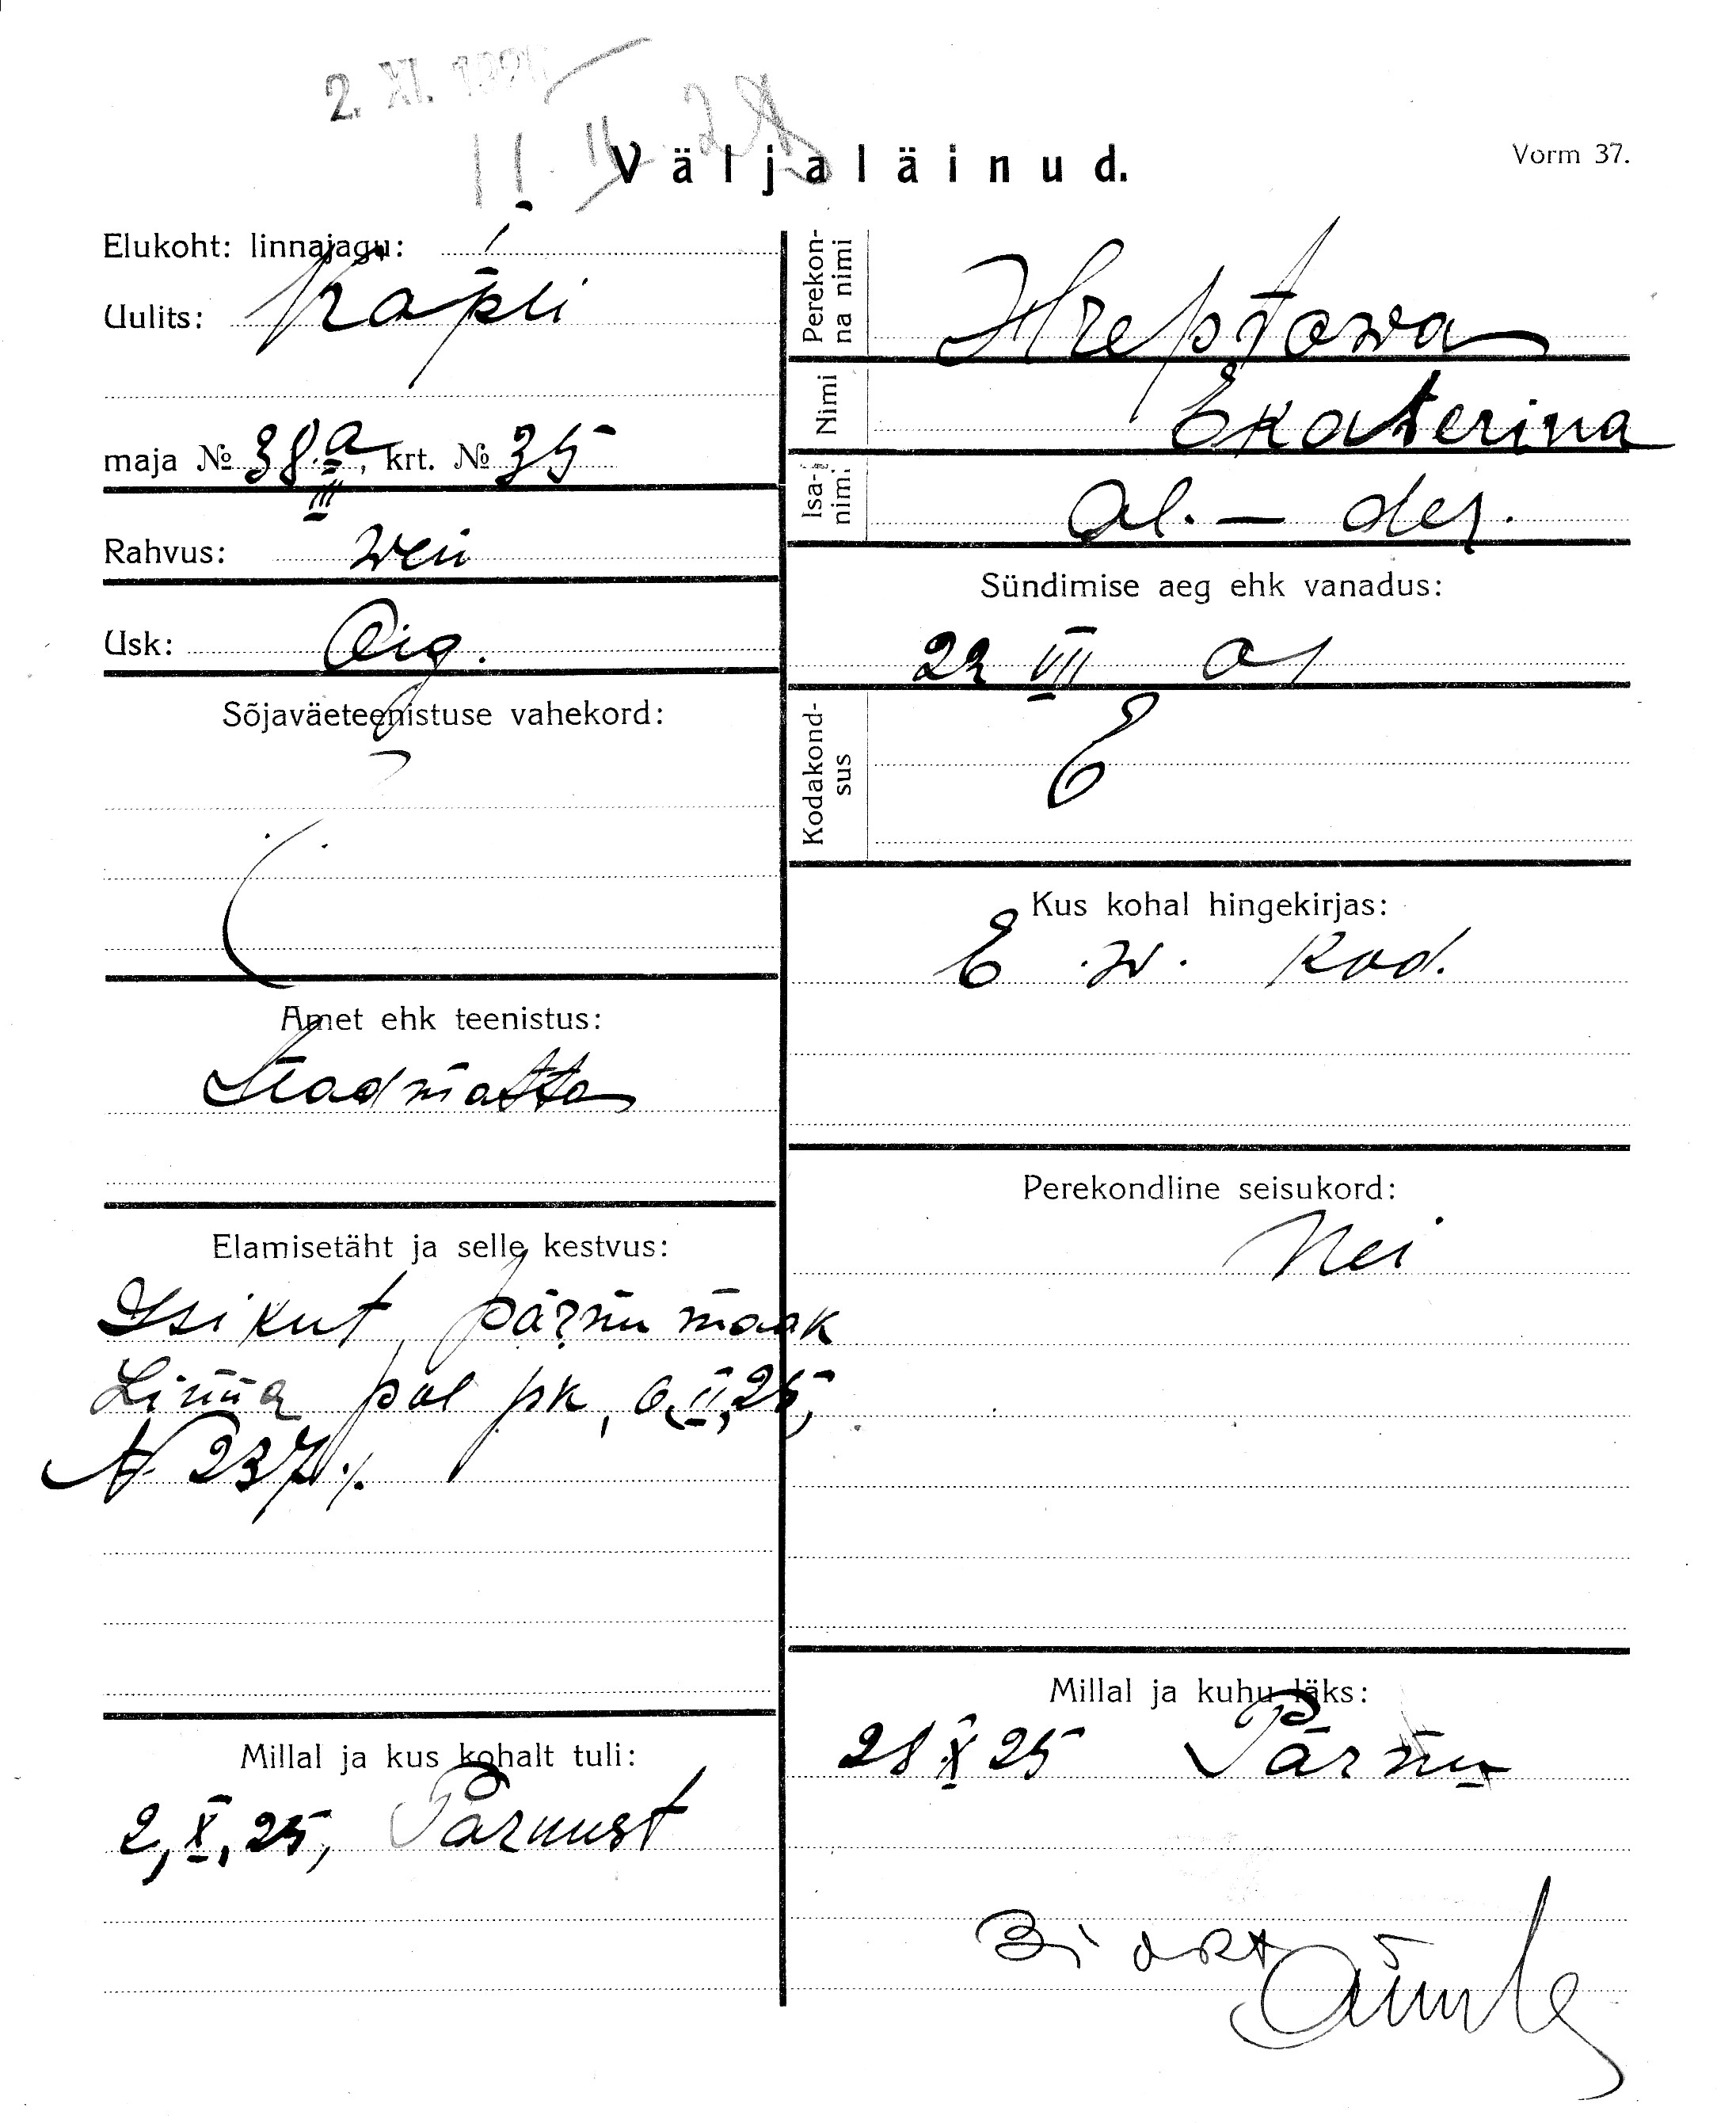 2. XI. 192
11. II 28
Väljaläinud.
Vorm 37.
Elukoht: linnajagu: 1
Uulits: Kopli
maja № 38 a, krt. № 35
III
Rahvus: wen
Usk: Õig.
Sõjaväeteenistuse vahekord:
Amet ehk teenistus:
teadmatta
Elamisetäht ja selle kestvus:
Isikut. pärnu maak
Linna pol pk, 6, II, 25,
N 237.
Millal ja kus kohalt tuli:
2, X, 25, Pärnust
Perekonna nimi
Hreptowa
Nimi
Ekaterina
Isanimi
Al. — der.
Sündimise aeg ehk vanadus:
22 VII 01
Kodakondsus
E
Kus kohal hingekirjas:
E. w. kod.
Perekondline seisukord:
Nei
Millal ja kuhu läks:
28 X 25 Pärnu